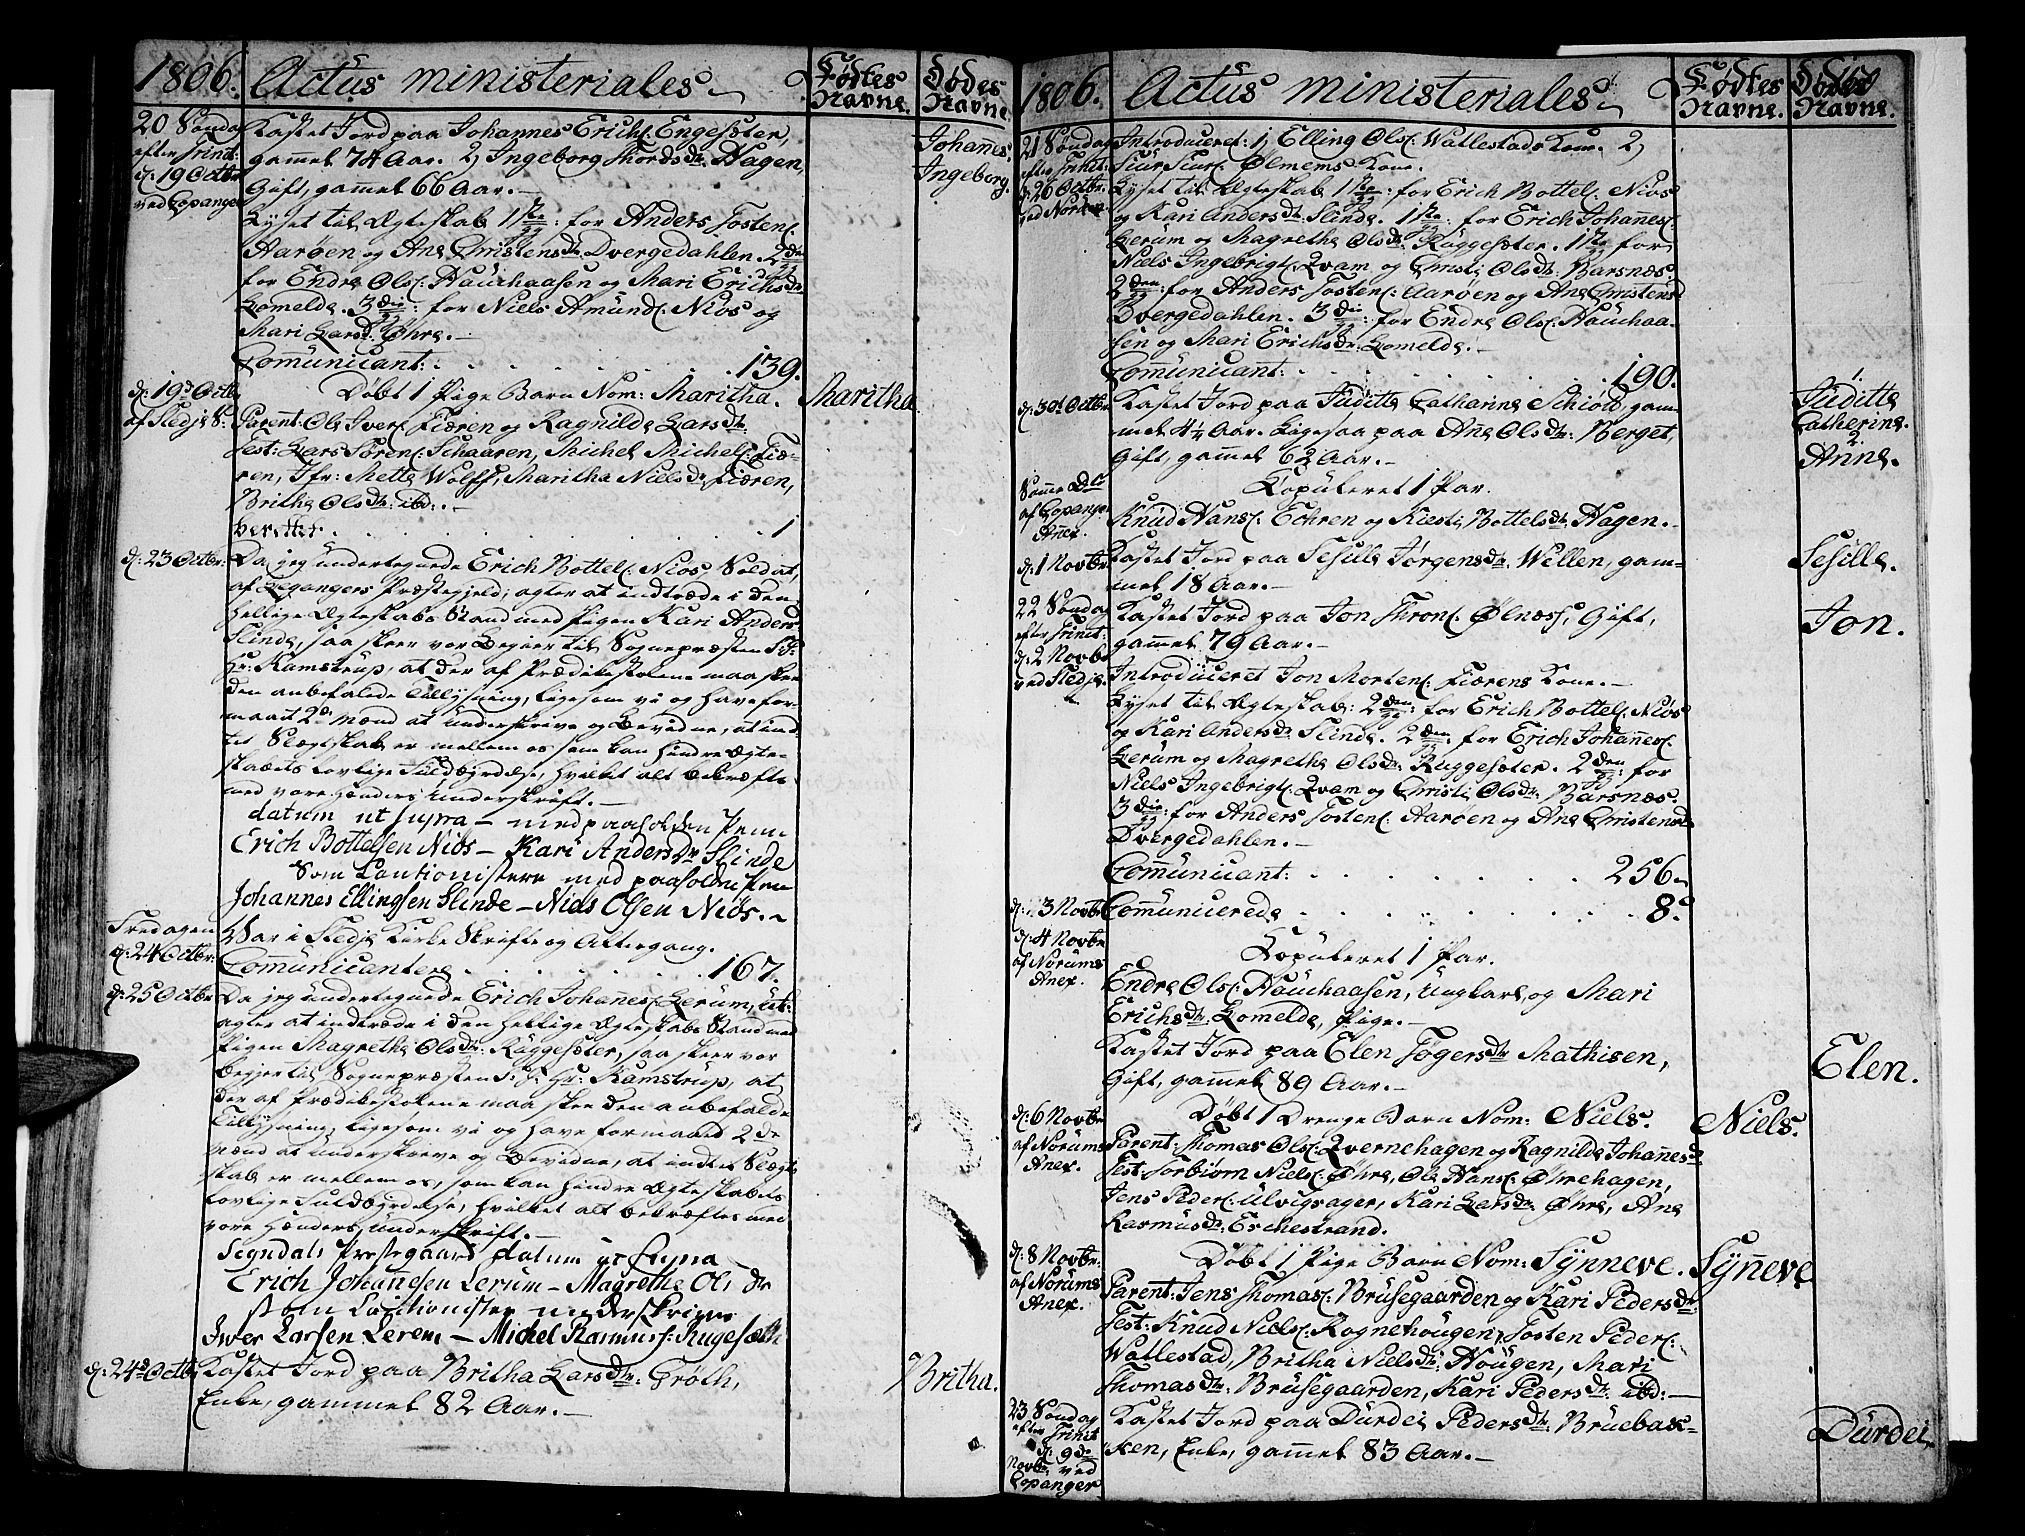 1806. Actus ministeriales. Födtes Navne. Dödes Navne.
20 Sönda efter Trinit: d. 19 Octbr ved Copanger
Kastet Jord paa Johannes Erichs: Engesæter, Johannes.
gammel 74 Aar. 2, Ingeborg Thordsdr: Hagen, Ingeborg.
Gift, gammel 66 Aar.
Lyset til Ægteskab 1ste gg: for Anders Josten:
Aaröen og Ane Christensdr: Dvergedahlen. 2den gg
for Endre Ols: Hauchaasen og Mari Erichsdr
Lomelde. 3die gg: for Niels Amund: Niös og
Mari Larsdr. Öhre.
Comunicant: 139.
d: 19de Octbr af Stedje S:
Döbt 1 Pige Barn Nom: Maritha. Maritha
Parent: Ole Iver: Fiæren og Ragnilde Larsdr:
Test: Lars Sören: Schaaren, Michel Michel: Fiæ-
ren, Jfr: Mette Wolff, Maritha Nielsdr Fiæren,
Britha Olsdr: ibd:
Berettet 1
d: 23 Octbr:
Da jeg undertegnede Erich Bottel: Niös, Soldat,
af Leganger Præstegjeld; agter at indtræde i den
hellige Ægteskabs Stand med Pigen Kari Anders
Slinde, saa skeer vor Begjer til Sognepræsten S:T:
Hr: Kamstrup, at der af Prædikestolene maa skee
den anbefalede Tillysning, ligesom vi og have for-
maaet 2de Mænd at underskrive og bevidne, at ind-
tet Slægtskab er mellem os som kan hindre Ægte-
skabets lovlige Fuldbyrdelse, hvilket alt bekræftes
med vore Hænders Underskrift.
datum ut supra - med paaholden Penn
Erich Bottelsen Niös - Kari Anders Dr Slinde
Som Cautionister med paaholden Pen
Johannes Ellingsen Slinde - Niels Olsen Niös.
Fredagen d: 24 Octbr:
War i Stedje Kirke Skrifte og Altergang.
Comunicantere 167.
d: 25 Octbr
Da jeg undertegnede Erich Johannes: Lerum,
agter at indtræde i den hellige Ægteskabs Stand med
Pigen Magrethe Olsdr: Ruggesæter, saa skeer vor
begjer til Sognepræsten S: T: Hr: Kamstrup, at
der af Prædikestolene maa skee den anbefalede
Tillysning, ligesom vi og have formaaed 2de
Mænd at underskrive og bevidne, at indtet Slægt-
skab er mellem os, som kan hindre Ægteskabets
lovlige Fuldbyrdelse, hvilket alt bekræftes med
vore Hænders Underskrift.
Sogndals Præstegaard datum ut supra
Erich Johannesen Lerum - Magrethe Ols dr
som Cautionister underskriver
Iwer Larsen Lerem - Michel Rasmus: Rugesæth
d: 24de Octbr
Kastet Jord paa Britha Larsdr: Gröth, Britha.
Enke, gammel 82 Aar.
1806. Actus ministeriales. Födtes Navne. Dödes Navne.
21 Söndag efter Trinit: d: 26 Octbr. ved Norum
Introduceret: 1, Elling Ols: Wallestads Kone. 2,
Siur Siur: Ölmems Kone.
Lyset til Ægteskab 1ste gg: for Erich Bottel: Niös
og Kari Andersdr: Slinde. 1ste gg: for Erich Johannes:
Lerum og Magrethe Olsdr: Ruggesæter. 1ste gg for
Niels Ingebrigt: Qvam og Christi Olsdr: Barsnæs.
2den gg: for Anders Josten: Aaröen og Ane Christens
Dvergedahlen. 3die gg: for Endre Ols: Hauchaa-
sen og Mari Erichsdr: Lomelde.
Comunicant: 190.
d: 30d Octbr
Kastet Jord paa Juditte Catharine Schiold, gam- 1. Juditte
mel 44 Aar. Ligesaa paa Ane Olsdr: Berget, Catherine.
Gift, gammel 62 Aar. 2. Anne.
Samme D: af Copanger Anex.
Copuleret 1 Par.
Knud Hans: Eehren og Kiersti Bottelsdr: Hagen.
d: 1 Novbr
Kastet Jord paa Sesille Jörgensdr: Wellen, gam- Sesille.
mel 18 Aar.
22 Sönda efter Trinit: d: 2 Novbr ved Stedje.
Kastet Jord paa Jon Thron: Ölnæs, Gift, Jon.
gammel 79 Aar.
Introduceret Jon Morten: Fiærens Kone.
Lyset til Ægteskab: 2den gg: for Erich Bottel: Niös
og Kari Andersdr Slinde. 2den gg: for Erich Johannes:
Lerum og Magrethe Olsdr: Ruggesæter. 2den gg: for
Niels Ingebrigt: Qvam og Christi Olsdr: Barsnæs.
3die gg: for Anders Josten: Aaröen og Ane Christensdr
Dvergedahlen.
Comunicant: 256
d: 3 Novbr Comunicerede 8.
d: 4 Novbr af Norums Anex.
Copuleret 1 Par.
Endre Ols: Hauchaasen, Ungkarl, og Mari
Erichsdr: Lomelde, Pige.
Kastet Jord paa Elen Jögersdr Mathisen, Elen.
Gift, gammel 89 Aar.
d: 6 Novbr af Norums Anex.
Döbt 1 Drenge Barn Nom: Niels. Niels.
Parent: Thomas Ols: Qvernehagen og Ragnilde Johannesd
Test: Torbiörn Niels: Öhre, Ole Hans: Öhrehagen,
Jens Peder: Ulvigsager, Kari Larsdr: Öhre, Ane
Rasmusdr: Erchestrand.
d: 8 Novbr af Norums Anex.
Döbt 1 Pige Barn Nom: Synneve. Synneve
Parent: Jens Thomas: Brusegaarden og Kari Pedersdr.
Test: Knud Niels: Rognehougen, Josten Peder:
Wallestad, Britha Nielsdr: Hougen, Mari
Thomasdr: Brusegaarden, Kari Pedersdr: ibd:
23 Söndag efter Trinit d: 9de Novbr ved Copanger
Kastet Jord paa Durdei Pedersdr: Bruebak- Durdei
ken, Enke, gammel 83 Aar.